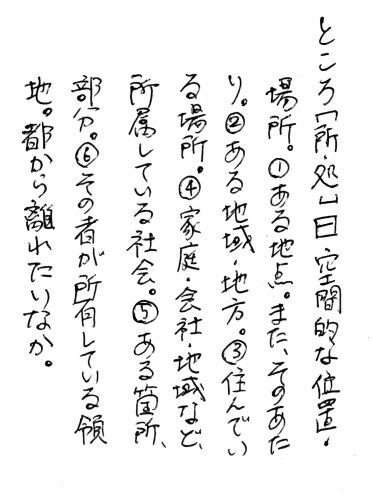 ところ「所・処」曰空間的な位置・
場所。①ある地点。また、そのあた
り。②ある地域・地方。③住んでい
る場所。④家庭・会社・地域など、
所属している社会。⑤ある箇所、
部分。⑥その者が所有している領
地。都から離れたいなか。